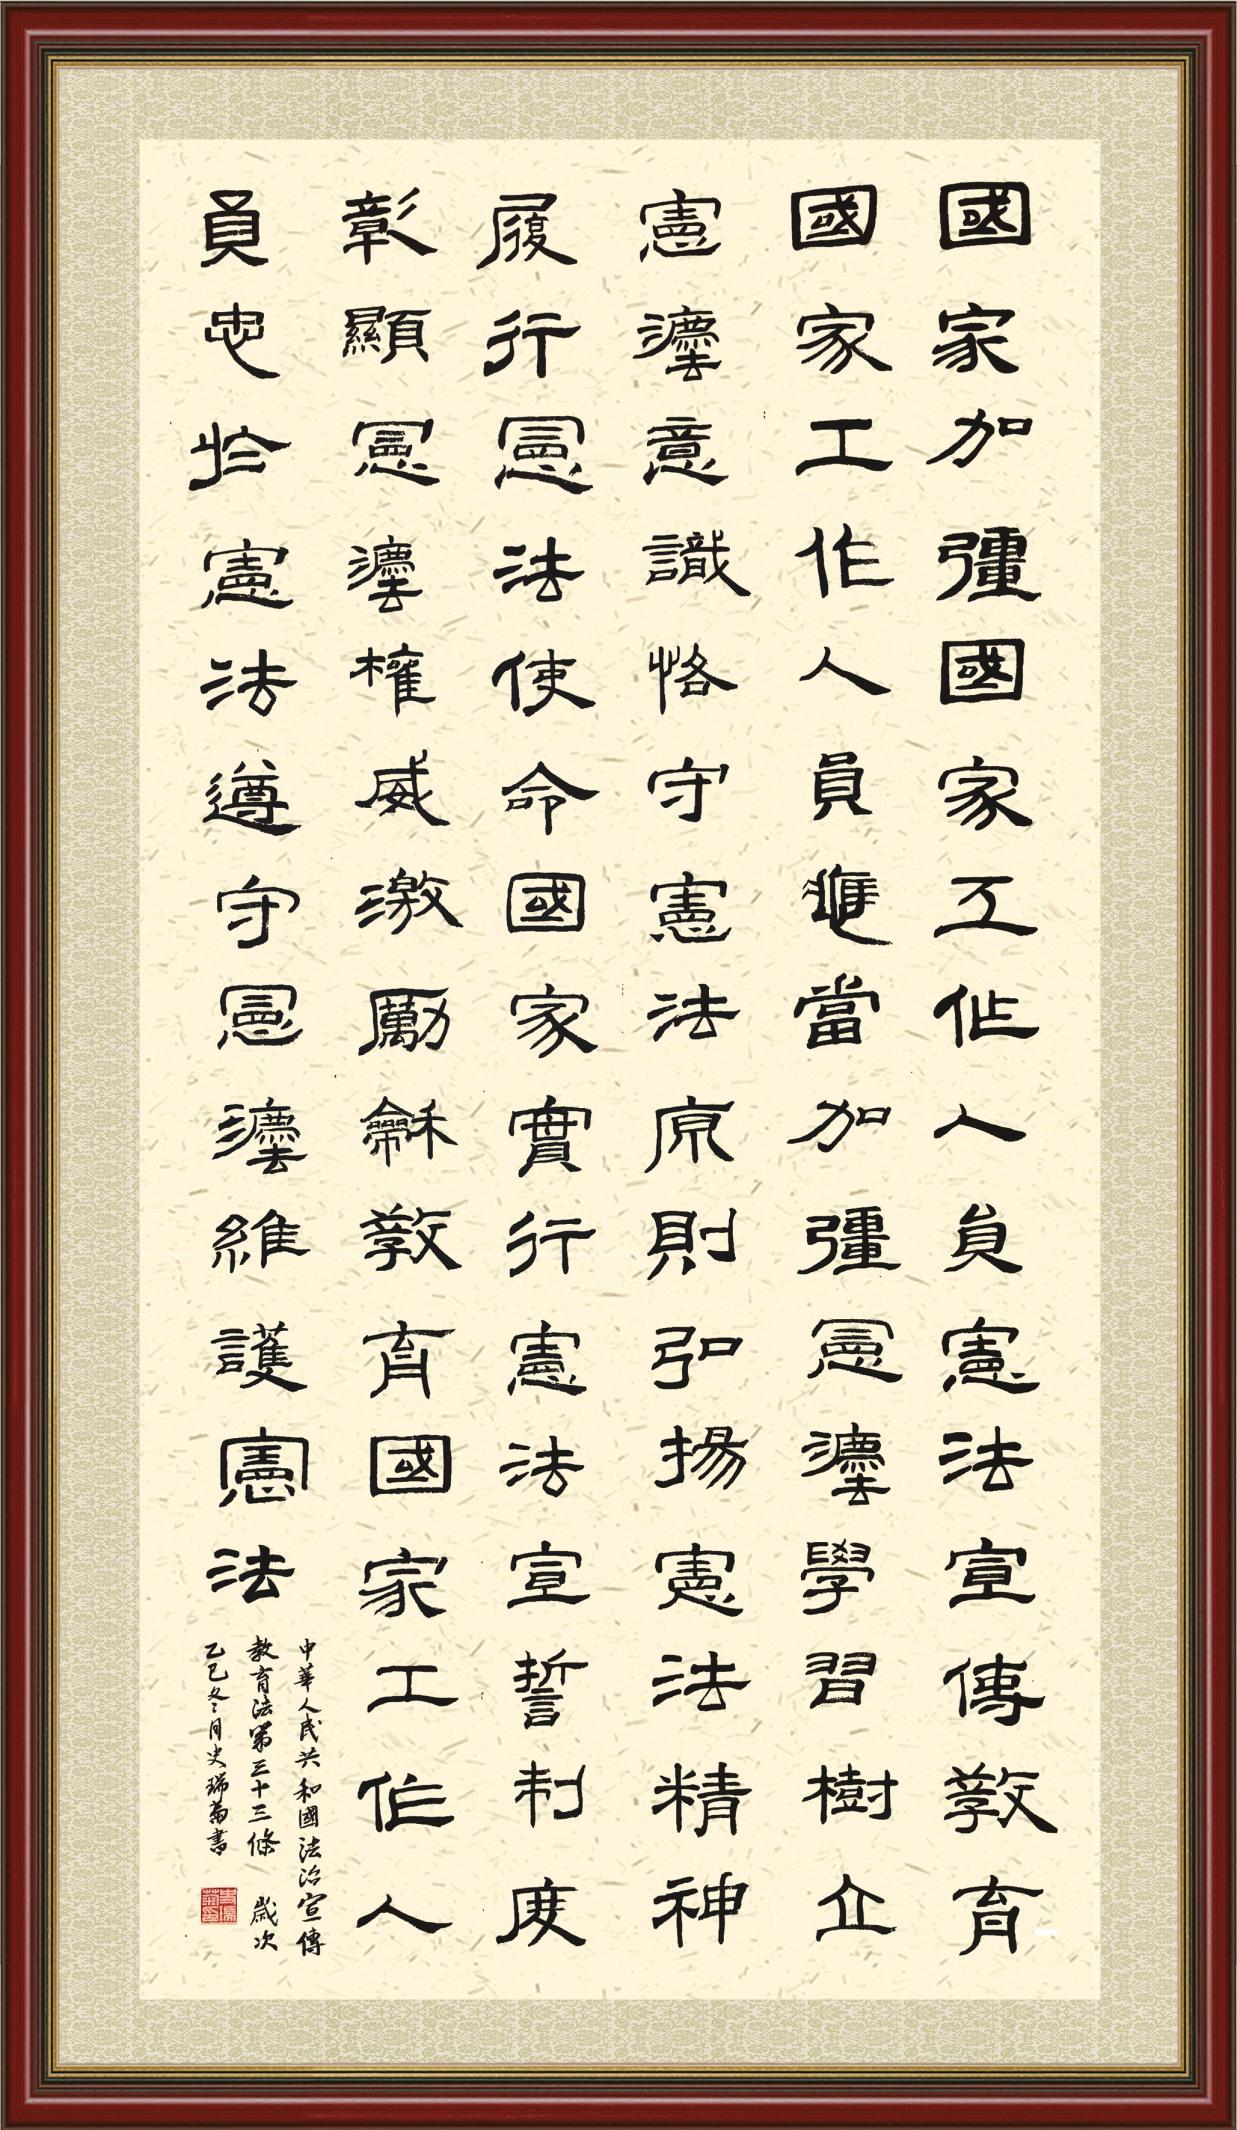 國家加彊國家工作人員憲法宣傳教育
國家工作人員應當加彊憲灋學習樹立
憲灋意識恪守憲法原則弘揚憲法精神
履行憲法使命國家實行憲法宣誓制度
彰顯憲灋權威激勵龢教育國家工作人
員忠於憲法遵守憲灋維護憲法
中華人民共和國法治宣傳
教育法第三十三條 歲次
乙巳冬月史瑞菊書